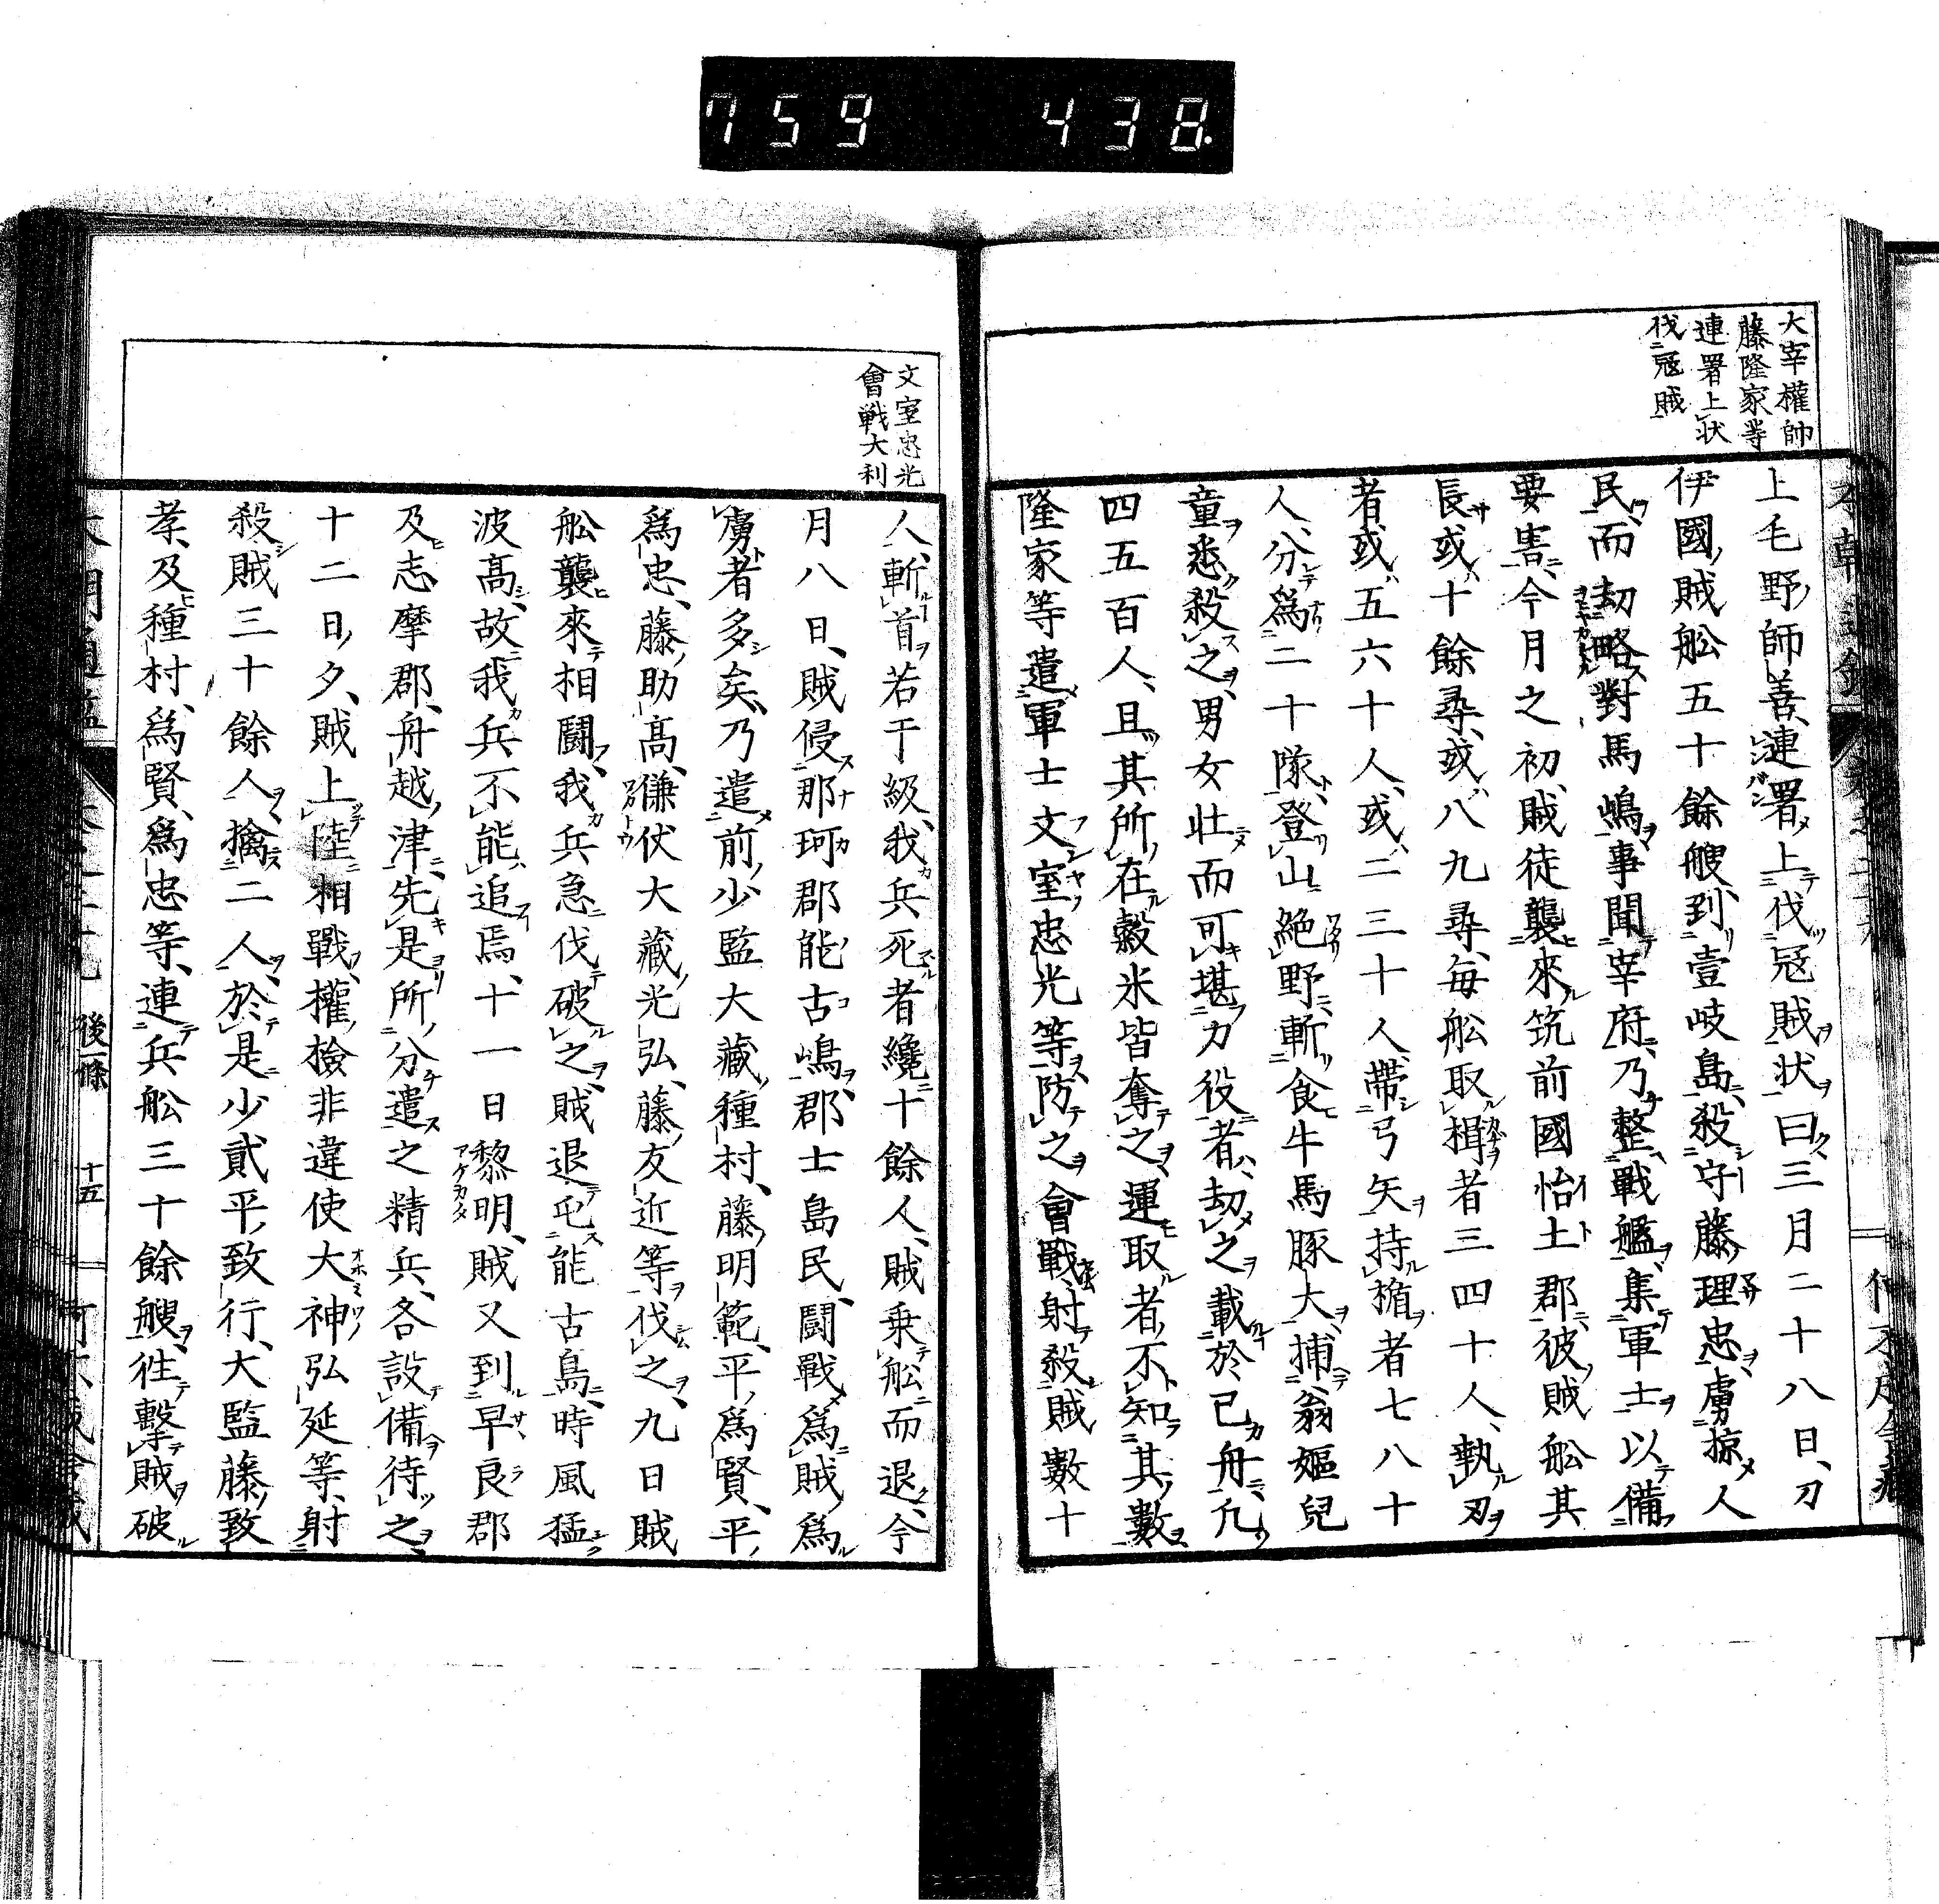 759 438.
大宰權帥
藤隆家等
連署上狀
伐冦賊
上毛野師善連署上伐冦賊狀曰三月二十八日刀
伊國賊舩五十餘艘到壹岐島殺守藤理忠虜掠人
民而劫略對馬嶋事聞宰府乃整戰艦集軍士以備
要害今月之初賊徒襲來筑前國怡土郡彼賊舩其
長或十餘尋或八九尋每舩取楫者三四十人執刃
者或五六十人或二三十人帶弓矢持楯者七八十
人分爲二十隊登山絶野斬食牛馬豚犬捕翁嫗兒
童悉殺之男女壯而可堪力役者劫之載於己舟凢
四五百人且其所在穀米皆奪之運取者不知其數
隆家等遣軍士文室忠光等防之會戰射殺賊數十
文室忠光
會戰大利
人斬首若干級我兵死者纔十餘人賊乗舩而退今
月八日賊侵那珂郡能古嶋郡士島民鬪戰爲賊爲
虜者多矣乃遣前少監大藏種村藤明範平爲賢平
爲忠藤助髙傔仗大藏光弘藤友近等伐之九日賊
舩襲來相鬪我兵急伐破之賊退屯能古島時風猛
波髙故我兵不能追焉十一日黎明賊又到早良郡
及志摩郡舟越津先是所分遣之精兵各設備待之
十二日夕賊上陸相戰權撿非違使大神弘延等射
殺賊三十餘人擒二人於是少貳平致行大監藤致
孝及種村爲賢爲忠等連兵舩三十餘艘徃擊賊破
後一條
十五